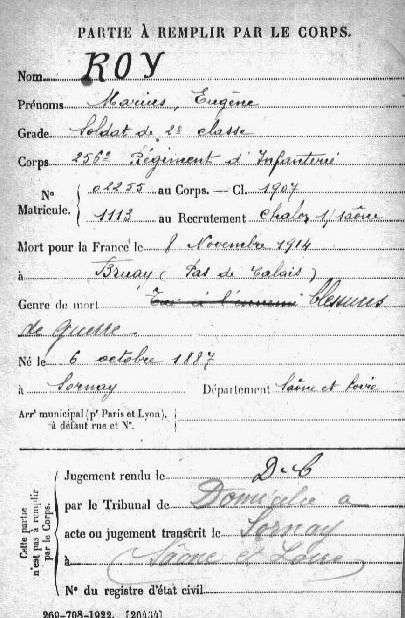 PARTIE À REMPLIR PAR LE CORPS.
Nom ROY
Prénoms Marius, Eugène
Grade Soldat de 2e classe
Corps 256e Régiment d'Infanterie
N° Matricule. 02255 au Corps. — Cl. 1907
1113 au Recrutement Chalon s/ Saône
Mort pour la France le 8 Novembre 1914
à Bruay (Pas de Calais)
Genre de mort Tué à l'ennemi blessures
de guerre.
Né le 6 octobre 1887
à Sornay Département Saône et Loire
Arrt municipal (pr Paris et Lyon),
à défaut rue et N°.
Cette partie n'est pas à remplir par le Corps.
Jugement rendu le D-C
par le Tribunal de Domicilié à
acte ou jugement transcrit le Sornay
à Saône et Loire
N° du registre d'état civil
269-708-1922. [26434]